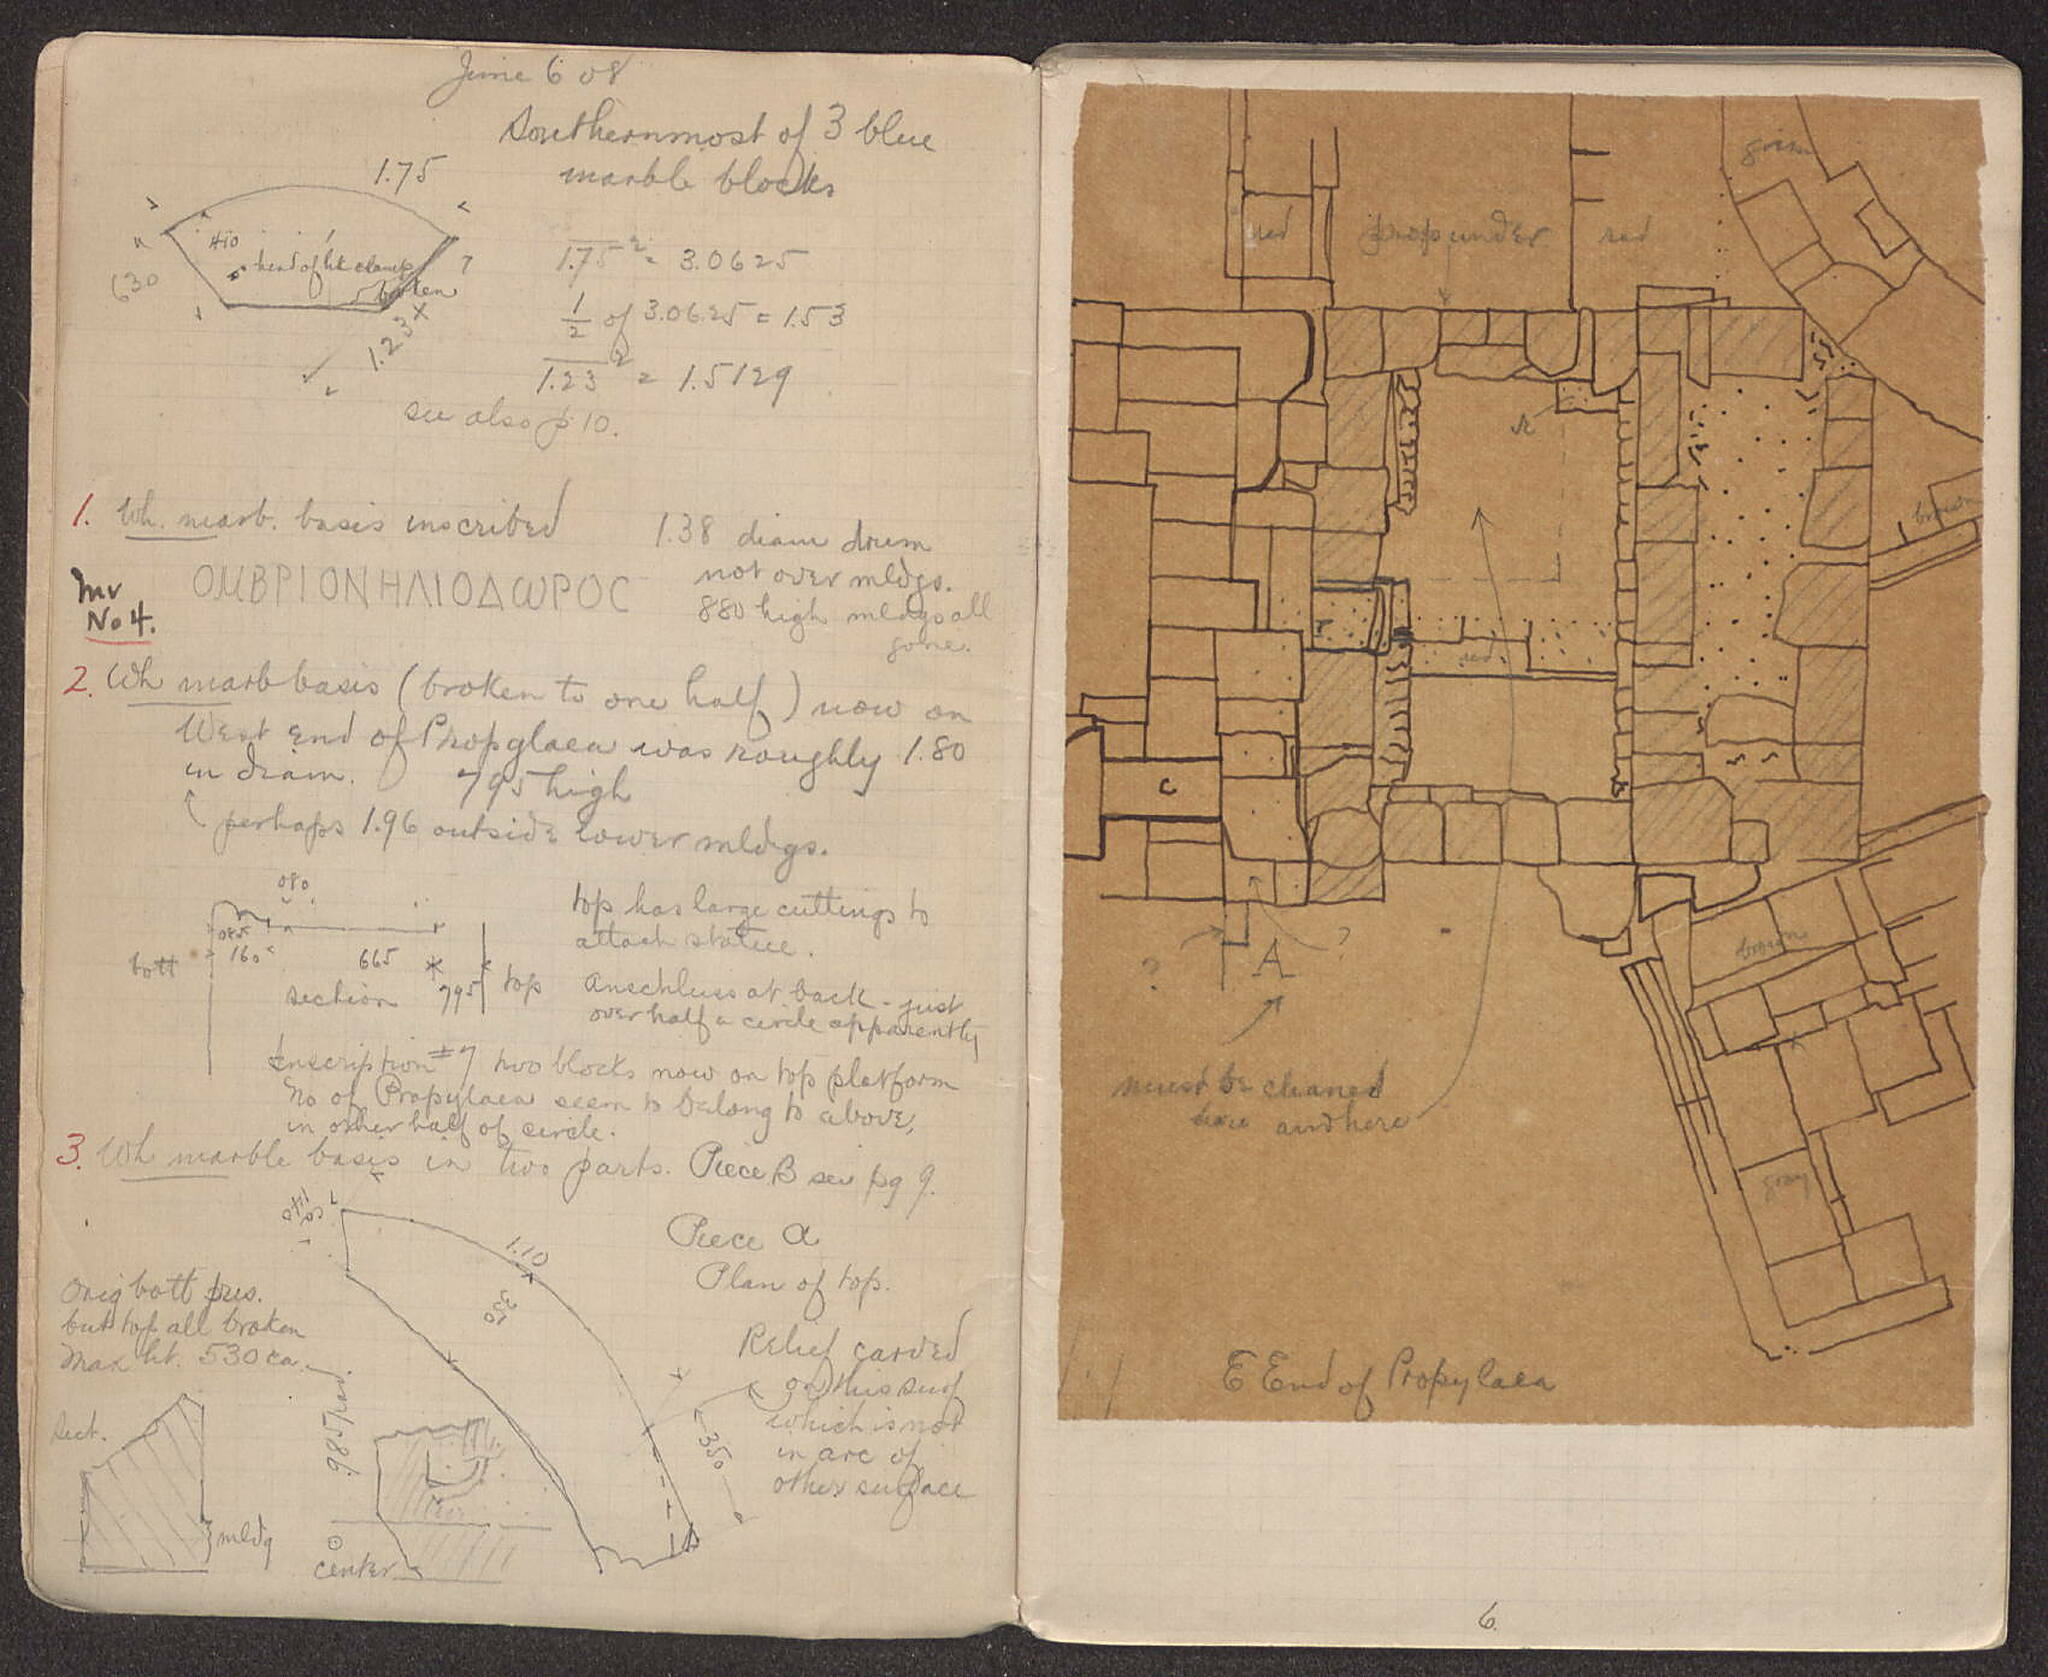 June 6 08
Southernmost of 3 blue
marble blocks
1.75
410
630
head of hk clamp
broken
?
1.23
1.75² = 3.0625
1/2 of 3.0625 = 1.53
1.23² = 1.5129
see also p 10.
1. Wh. marb. basis inscribed
1.38 diam drum
not over mldgs.
880 high mldgs all
gone.
Inv
No 4.
ΟΜΒΡΙΟΝΗΛΙΟΔωΡΟC
2. Wh marb basis (broken to one half) now on
West end of Propylaea was roughly 1.80
in diam. 795 high
perhaps 1.96 outside lower mldgs.
080
085
160
665
bott
section
795
top
top has large cuttings to
attach statue.
Anschluss at back - just
over half a circle apparently
Inscription #7 two blocks now on top platform
No of Propylaea seem to belong to above,
in other half of circle.
3. Wh marble basis in two parts. Piece B see pg 9.
Piece A
Plan of top.
1.10
350
Orig bott pres.
but top all broken
Max ht. 530 ca.
Relief carved
on this surf
which is not
in arc of
other surface
350
.985 rad.
sect.
mldg
center
green
red
prop under
red
r
brown
r
red
c
?
A
?
brown
must be cleaned
here and here
gray
E End of Propylaea
6